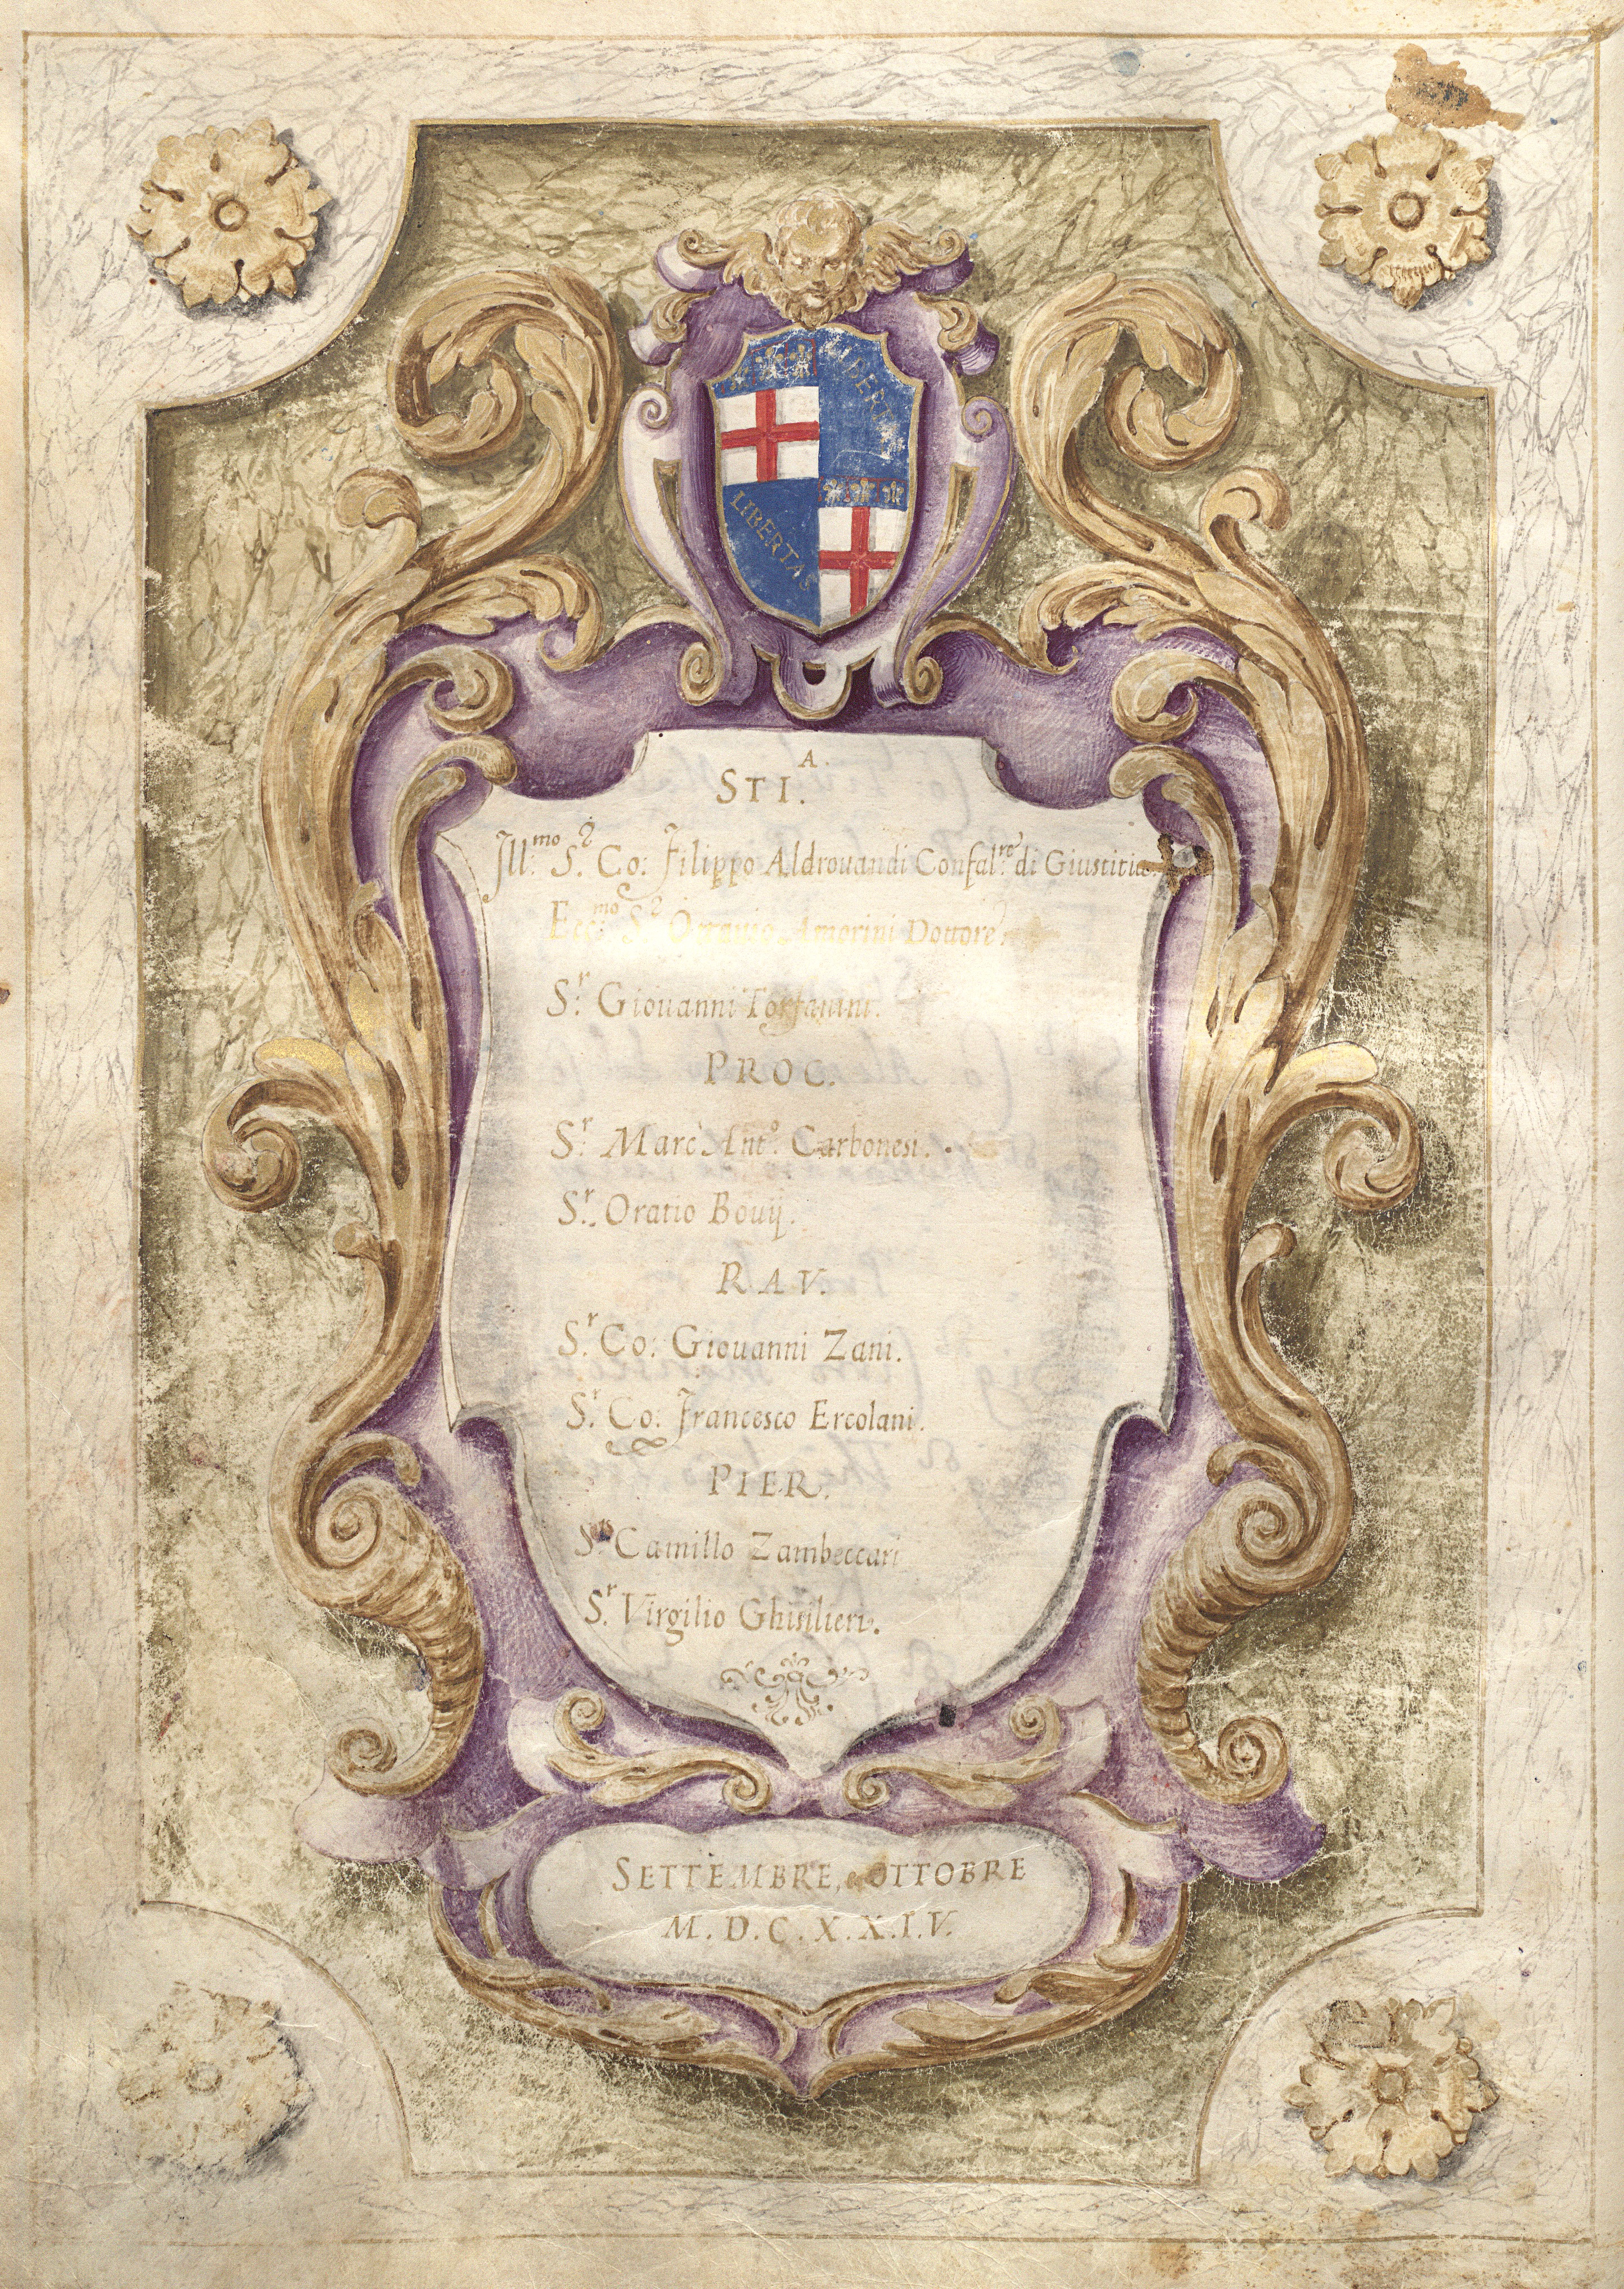 LIBERTAS
LIBERTAS
STI.ᴬ·
Jll:ᵐᵒ S.ʳ Co: Filippo Aldrouandi Confal.ʳᵉ di Giustitia
Ecc.ᵐᵒ S.ʳ Amorini Dottore.
S.ʳ Giouanni Torfanini.
PROC.
S.ʳ Marc' Ant.º Carbonesi.
S.ʳ Oratio Bouij.
RAV.
S.ʳ Co: Giouanni Zani.
S.ʳ Co: Francesco Ercolani.
PIER.
S.ʳ Camillo Zambeccari
S.ʳ Virgilio Ghisilieri.
SETTEMBRE, e OTTOBRE
M.D.C.X.X.I.V.